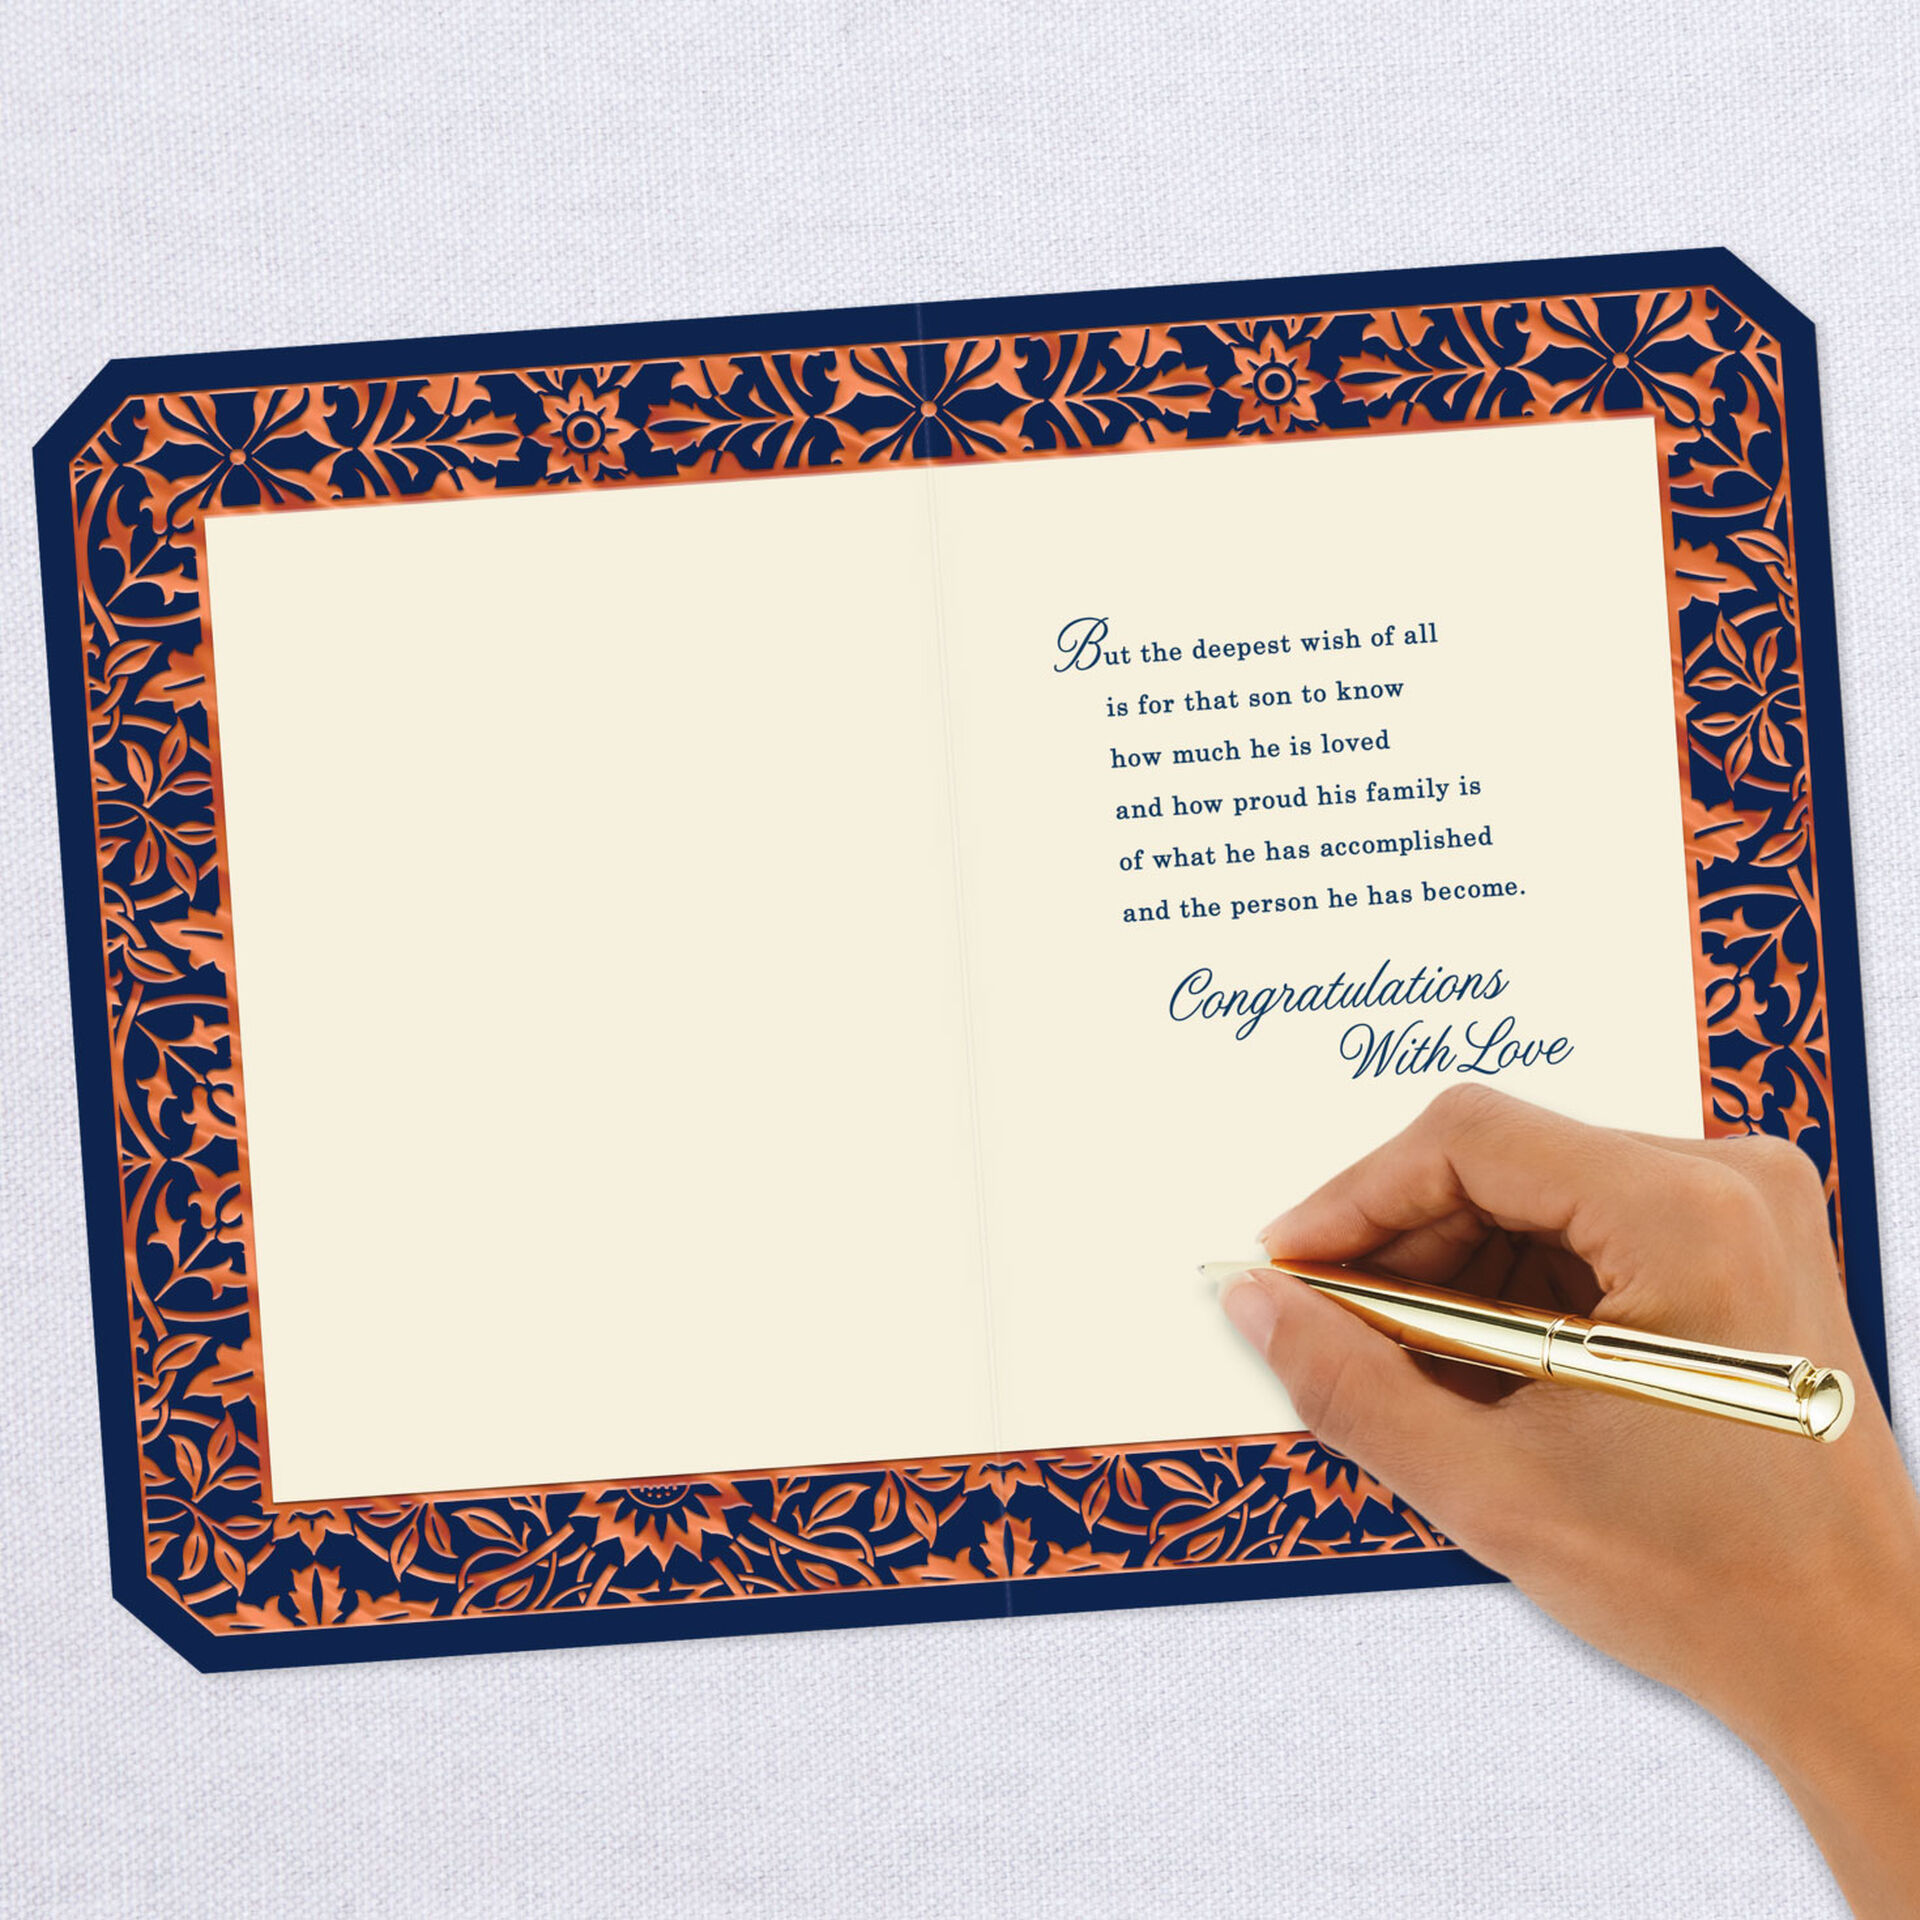 But the deepest wish of all
is for that son to know
how much he is loved
and how proud his family is
of what he has accomplished
and the person he has become.
Congratulations
With Love